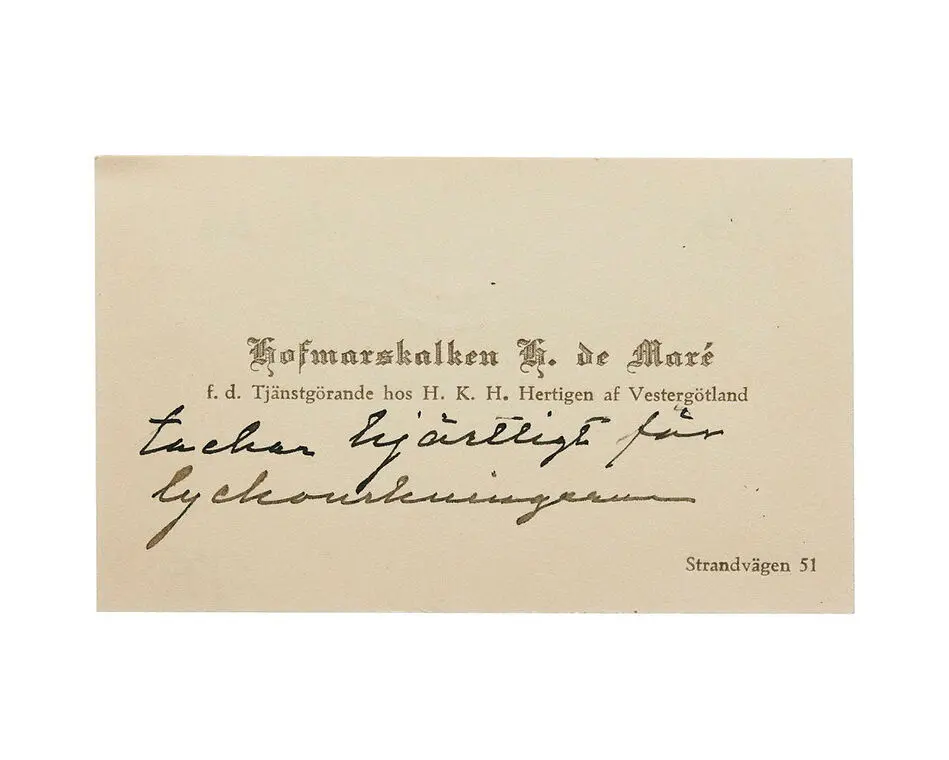 Hofmarskalken H. de Maré
f. d. Tjänstgörande hos H. K. H. Hertigen af Vestergötland
tackar hjärtligt för
lyckönskningarna
Strandvägen 51